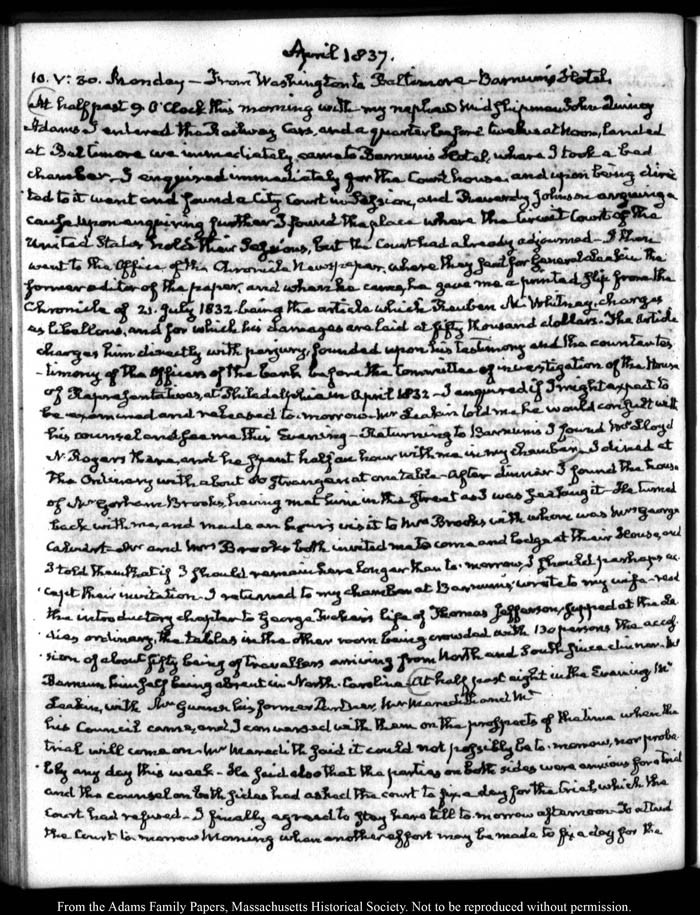 April 1837.
10. V: 30. Monday — From Washington to Baltimore — Barnum's Hotel.
At half past 9 O'Clock this morning with my nephew Midshipman John Quincy
Adams I entered the Railway Cars, and a quarter before twelve at Noon, landed
at Baltimore we immediately came to Barnum's Hotel, where I took a bed
chamber. I enquired immediately for the Court house, and upon being direc
ted to it went and found a City Court in Session, and Reverdy Johnson arguing a
cause upon enquiring further I found the place where the Circuit Court of the
United States hold their Sessions, but the Court had already adjourned — I then
went to the Office of the Chronicle Newspaper, where they sent for General Leakin the
former editor of the paper, and when he came, he gave me a printed slip from the
Chronicle of 21. July 1832 being the article which Reuben M. Whitney, charges
as libellous, and for which his damages are laid at fifty thousand dollars. The Article
charges him directly with perjury, founded upon his testimony and the counter tes
timony of the Officers of the bank before the Committee of investigation of the House
of Representatives, at Philadelphia in April 1832 — I enquired if I might expect to
be examined and released to-morrow. Mr Leakin told me he would consult with
his counsel and see me this Evening — Returning to Barnum's I found Mr Lloyd
N. Rogers there, and he spent half an hour with me in my chamber. I dined at
the Ordinary with about 80 strangers at one table — After dinner I found the house
of Mr Gorham Brooks, having met him in the Street as I was seeking it — He turned
back with me, and made an hour's visit to Mrs Brooks with whom was Mrs George
Calvert — Mr and Mrs Brooks both invited me to come and lodge at their House, and
I told them that if I should remain here longer than to-morrow, I should perhaps ac
cept their invitation — I returned to my chamber at Barnum's wrote to my wife — read
the introductory chapter to George Tucker's life of Thomas Jefferson, supped at the La
dies ordinary, the tables in the other room being crowded with 130 persons the acces
sion of about fifty being of travellers arriving from North and South since dinner. Mr
Barnum himself being absent in North-Carolina. At half past eight in the Evening Mr
Leakin, with Mr his former Partner, Mr Meredith and Mr
his Council came, and I conversed with them on the prospects of the time when the
trial will come on. Mr Meredith said it could not possibly be to-morrow, nor proba
bly any day this week — He said also that the parties on both sides were anxious for a trial
and the counsel on both sides had asked the court to fix a day for the trial, which the
Court had refused — I finally agreed to stay here till to-morrow afternoon. To attend
the Court to-morrow Morning when another effort may be made to fix a day for the
From the Adams Family Papers, Massachusetts Historical Society. Not to be reproduced without permission.